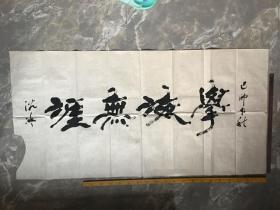 己卯年秋
學海無涯